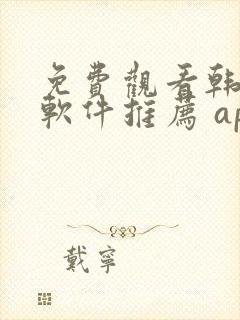 免費觀看韩
軟件推薦 ap
戴寧